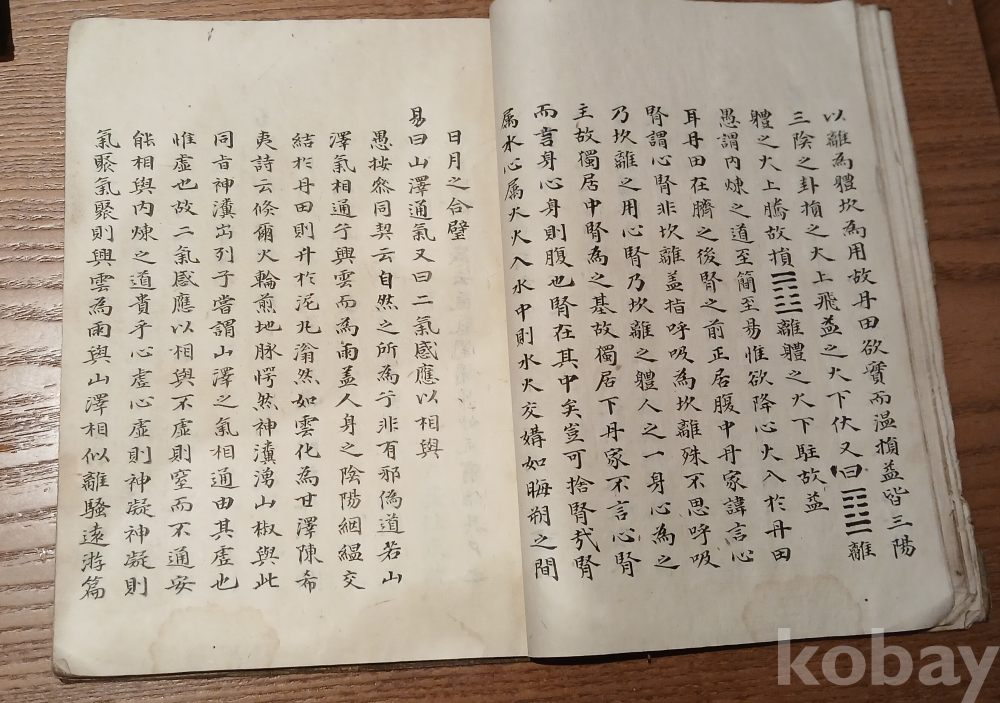 以離為體坎為用故丹田欲實而温損益皆三陽
三陰之卦損之火上飛益之火下伏又曰䷕離
體之火上騰故損䷨離體之火下駐故益
愚謂内煉之道至簡至易惟欲降心火入於丹田
耳丹田在臍之後腎之前正居腹中丹家諱言心
腎謂心腎非坎離盖指呼吸為坎離殊不思呼吸
乃坎離之用心腎乃坎離之體人之一身心為之
主故獨居中腎為之基故獨居下丹家不言心腎
而言身心身則腹也腎在其中矣豈可捨腎㢤腎
属水心属火火入水中則水火交媾如晦朔之間
日月之合璧
易曰山澤通氣又曰二氣感應以相與
愚按叅同契云自然之所為兮非有邪僞道若山
澤氣相通兮興雲而為雨盖人身之陰陽絪緼交
結於丹田則升於泥丸滃然如雲化為甘澤陳希
夷詩云倏爾火輪煎地脉愕然神瀵湧山椒與此
同㫖神瀵出列子嘗謂山澤之氣相通由其虛也
惟虛也故二氣感應以相與不虛則窒而不通安
能相與内煉之道貴乎心虛心虛則神凝神凝則
氣聚氣聚則興雲為雨與山澤相似離騷遠游篇
kobay